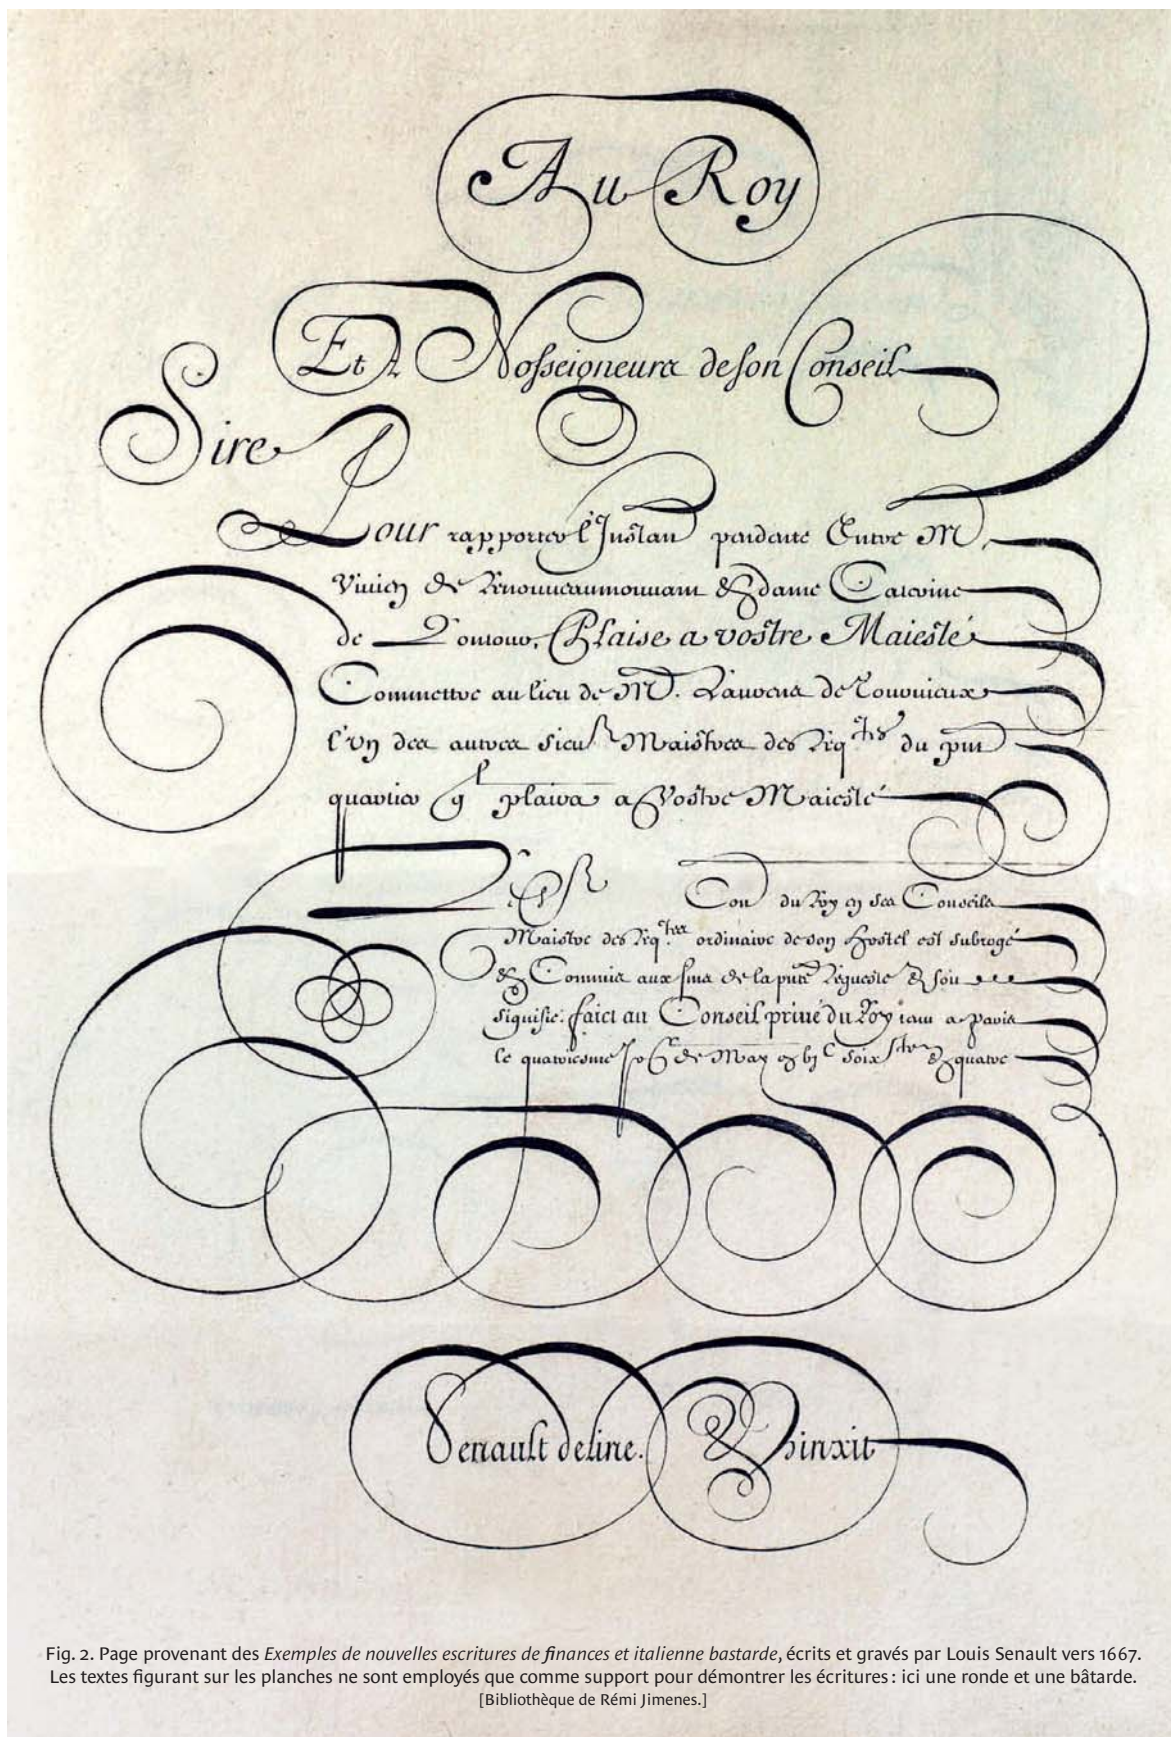 Au Roy
Et A Nosseigneurs de son Conseil
Sire
Pour rapporter l'Instan pendante Entre M
Vivien de & dame Caterine
de Plaise a vostre Maiesté
Commettre au lieu de M. de
l'un des autres sieurs Maistres des Req.tes du pnt
quartier ql plaira a Vostre Maiesté
Le Sr Con du Roy en ses Conseils
Maistre des Req.tes ordinaire de son Hostel est subrogé
& Commis aux fins de la pnte Requeste & soit
signifié: faict au Conseil privé du Roy tenu a Paris
le jour de May gbjC soixte & quatre
Senault deline. & Pinxit
Fig. 2. Page provenant des Exemples de nouvelles escritures de finances et italienne bastarde, écrits et gravés par Louis Senault vers 1667.
Les textes figurant sur les planches ne sont employés que comme support pour démontrer les écritures : ici une ronde et une bâtarde.
[Bibliothèque de Rémi Jimenes.]